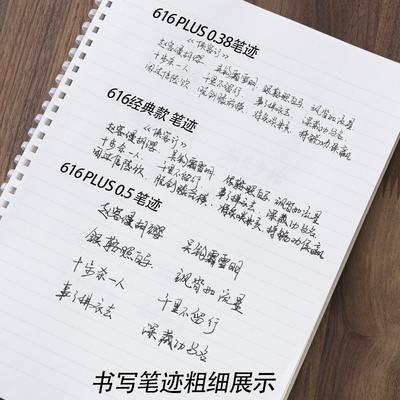 616 PLUS 0.38笔迹
《侠客行》
赵客缦胡缨 吴钩霜雪明 银鞍照白马 飒沓如流星
十步杀一人, 千里不留行 事了拂衣去 深藏功与名
闲过信陵饮 脱剑膝前横
616经典款 笔迹
《侠客行》
赵客缦胡缨 吴钩霜雪明 银鞍照白马 飒沓如流星
十步杀一人, 千里不留行 事了拂衣去 深藏功与名
闲过信陵饮 脱剑膝前横
616 PLUS 0.5 笔迹
赵客缦胡缨 吴钩霜雪明
银鞍照白马 飒沓如流星
十步杀一人 千里不留行
事了拂衣去 深藏功与名
书写笔迹粗细展示